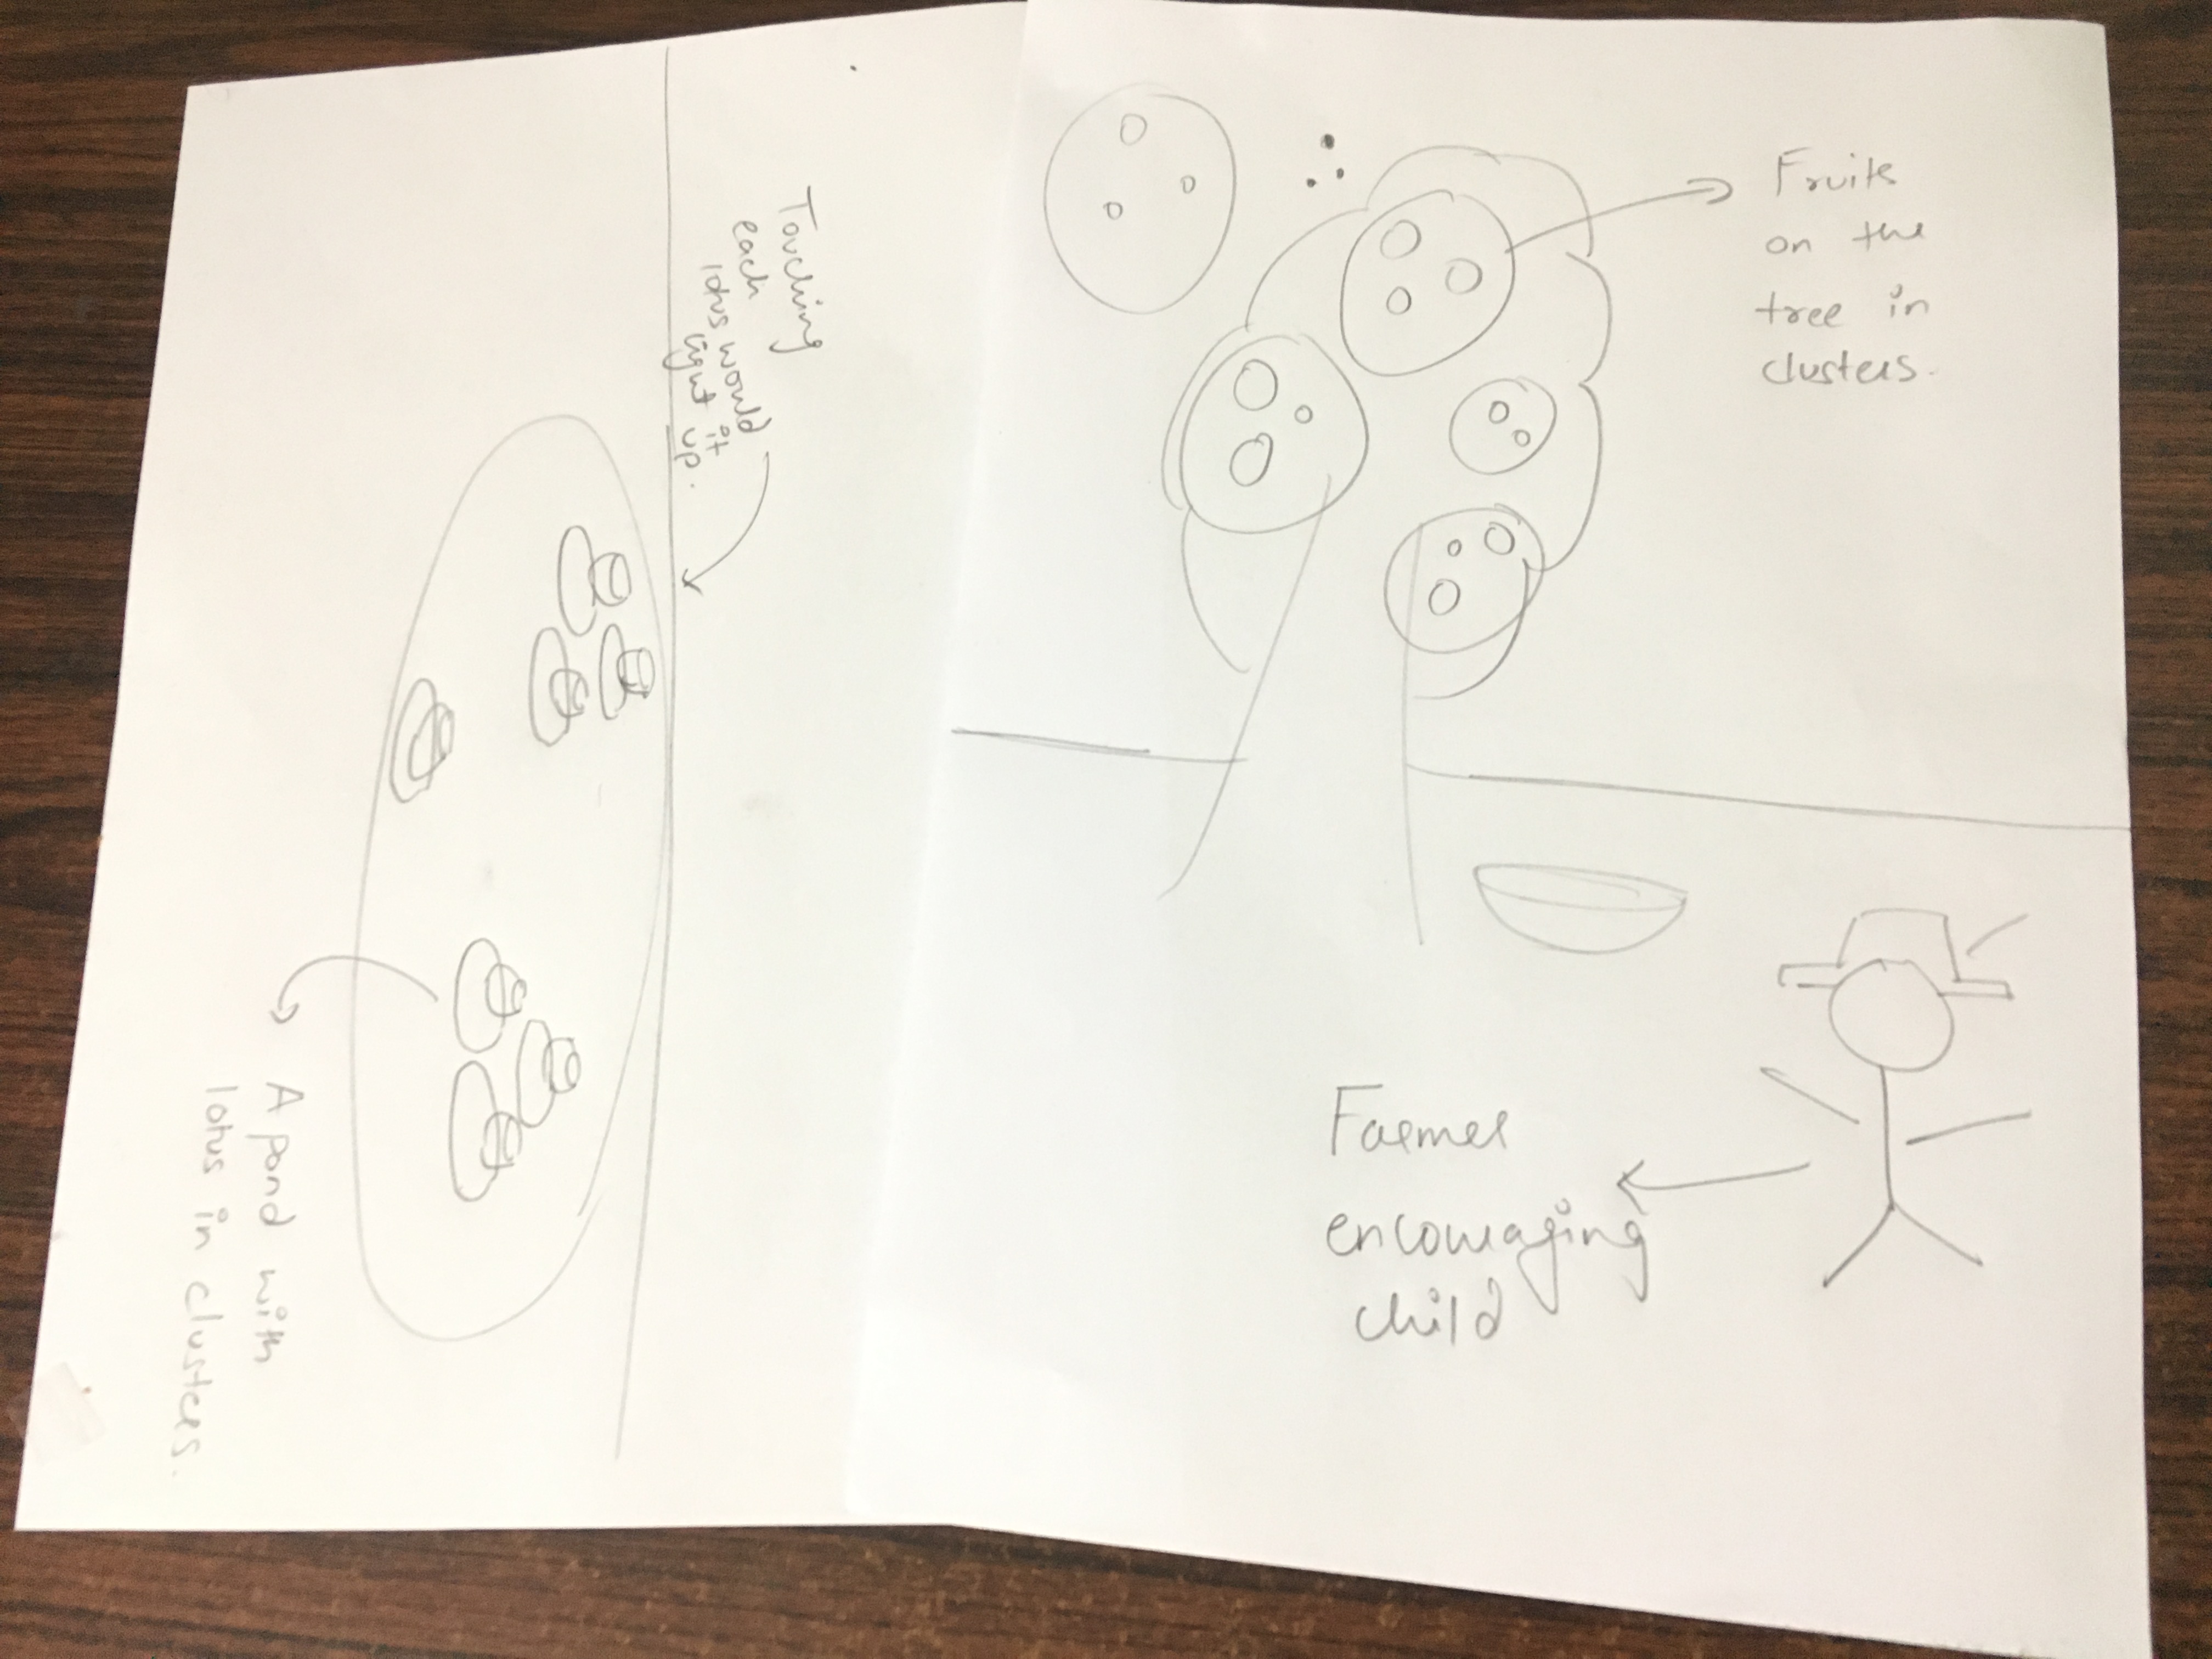 Touching
each
lotus would
light it
up.
A pond with
lotus in clusters.
Fruits
on the
tree in
clusters.
Farmer
encouraging
child